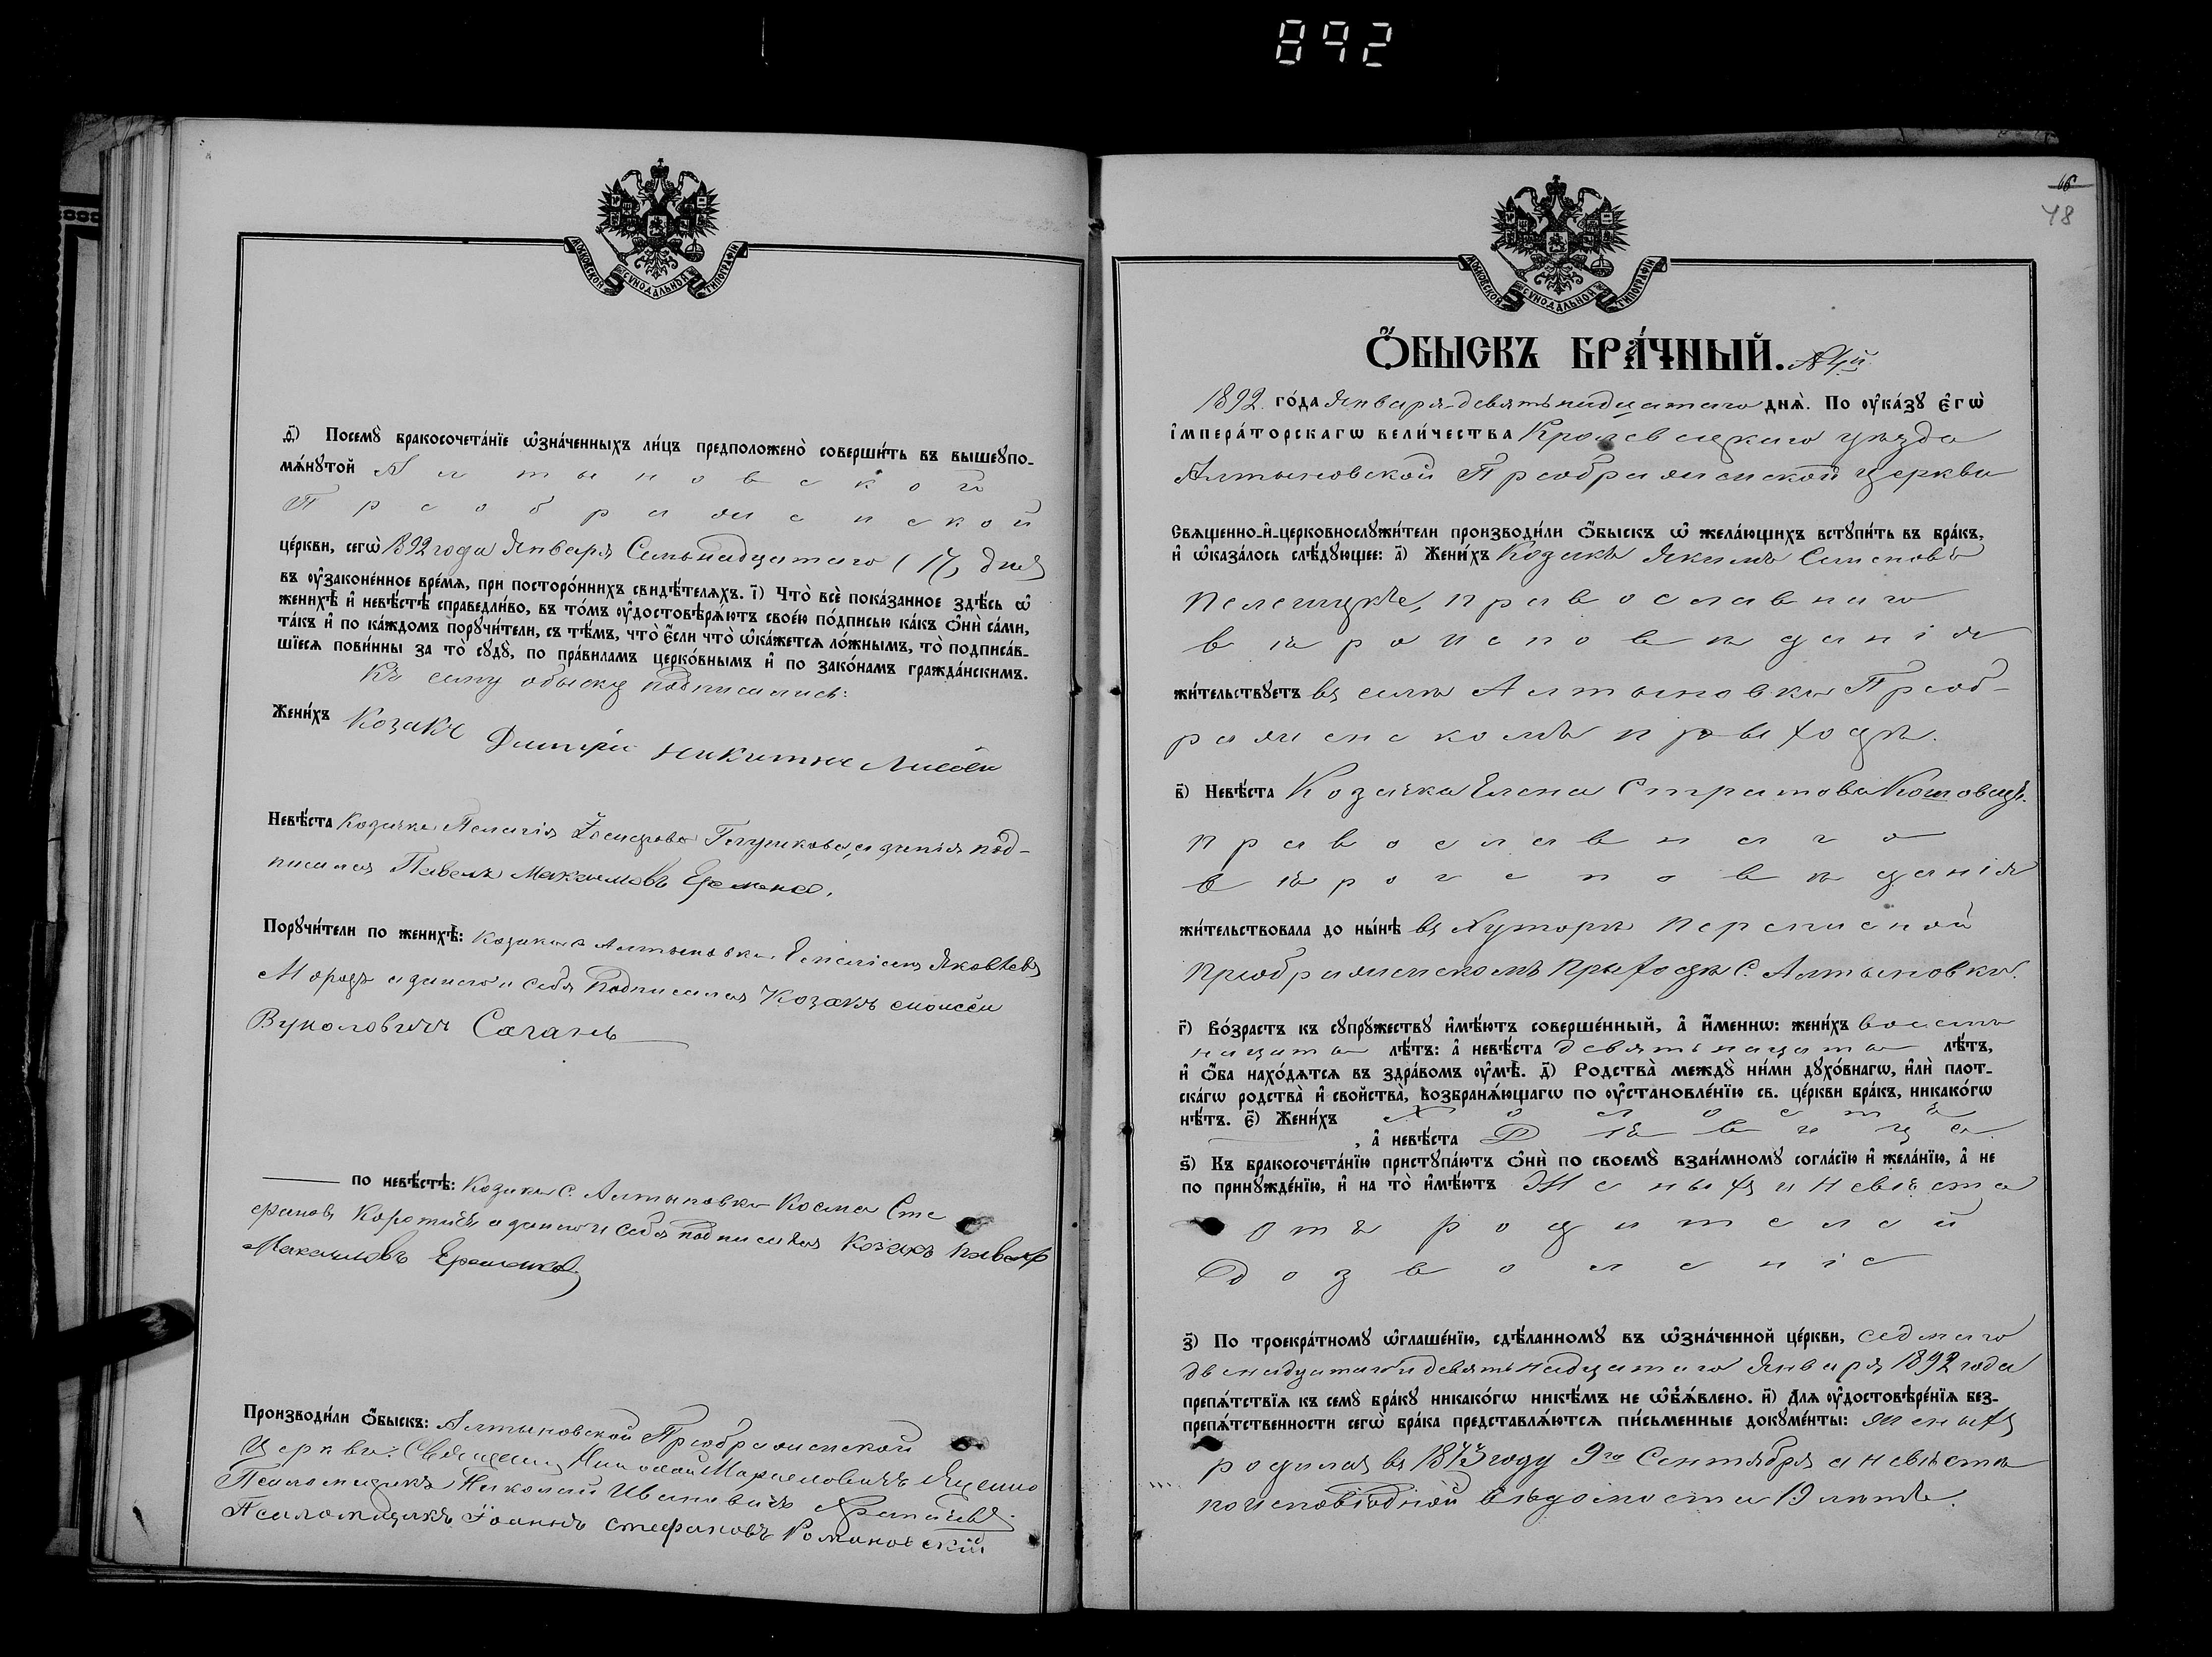 892
МОСКОВСКОЙ СУНОДАЛЬНОЙ ТИПОГРАФІИ
Посемꙋ̀ бракосочета́нїе ѡ҆зна́ченныхъ ли́цъ предположено̀ соверши́ть въ вышеꙋпо-
мѧ́нꙋтой Алтыновской
Преображенской
це́ркви, сегѡ̀ 1892 года Января Семьнадцатаго (17) дня
въ ᲂу҆законе́нное вре́мѧ, при посторо́ннихъ свидѣ́телѧхъ. і҃) Что̀ всѐ пока́занное здѣ́сь ѡ҆
женихѣ̀ и҆ невѣ́стѣ справедли́во, въ то́мъ ᲂу҆достовѣрѧ́ютъ свое́ю по́дписью ка́къ ѻ҆нѝ са́ми,
та́къ и҆ по ка́ждомъ порꙋчи́тели, съ тѣ́мъ, что̀ є҆́сли что̀ ѡ҆ка́жетсѧ ло́жнымъ, то̀ подписа́в-
шїесѧ пови́нны за то̀ сꙋдꙋ̀, по пра́виламъ церко́внымъ и҆ по зако́намъ гражда́нскимъ.
Къ сему обыску подписались:
Жени́хъ Козакъ Димитрій Никитинъ
Невѣ́ста Козачка Пелагія Іосифова
писался Павелъ Максимовъ Еременко.
Порꙋчи́тели по женихѣ̀: Козаки с Алтыновки Яковлевъ
Морозъ а за него и себя подписался Козакъ
Вуколовичъ Сачанъ
по невѣ́стѣ: Козаки с. Алтыновки Косма Сте
фановъ а за него и себя подписался Козакъ Павелъ
Максимовъ Еременко
Производи́ли ѻ҆́быскъ: Алтыновской Преображенской
Церкви: Священникъ
Псаломщикъ Николай Ивановичъ
Псаломщикъ Іоаннъ Стефановъ Романовскій
48
МОСКОВСКОЙ СУНОДАЛЬНОЙ ТИПОГРАФІИ
Ѻ҆́БЫСКЪ БРА́ЧНЫЙ. №4й
1892 го́да Января девятьнадцатаго днѧ̀. По ᲂу҆ка́зꙋ є҆гѡ̀
і҆мпера́торскагѡ вели́чества Кролевецкаго уѣзда
Алтыновской Преображенской церкви
Свѧщенно-и҆-церковнослꙋжи́тели производи́ли ѻ҆́быскъ ѡ҆ жела́ющихъ встꙋпи́ть въ бра́къ,
и҆ ѡ҆каза́лось слѣ́дꙋющее: а҃) Жени́хъ Козакъ Якимъ Семеновъ
православнаго
вѣроисповѣданія
жи́тельствꙋетъ въ селѣ Алтыновкѣ Преоб-
раженскомъ приходѣ.
в҃) Невѣ́ста Козачка Елена
православнаго
вѣроисповѣданія
жи́тельствовала до ны́нѣ въ Хуторѣ
Преображенскомъ приходѣ с. Алтыновки.
г҃) Во́зрастъ къ сꙋпрꙋ́жествꙋ и҆мѣ́ютъ соверше́нный, а҆ и҆́меннѡ: жени́хъ восемь
надцать лѣ́тъ: а҆ невѣ́ста девятьнадцать лѣ́тъ,
и҆ ѻ҆́ба нахо́дѧтсѧ въ здра́вомъ ᲂу҆мѣ̀. д҃) Родства̀ междꙋ̀ ни́ми дꙋхо́внагѡ, и҆лѝ плот-
ска́гѡ родства̀ и҆ свойства̀, возбранѧ́ющагѡ по ᲂу҆становле́нїю св. це́ркви бра́къ, никако́гѡ
нѣ́тъ. є҃) Жени́хъ Холостъ
, а҆ невѣ́ста Дѣвица
ѕ҃) Къ бракосочета́нїю пристꙋпа́ютъ ѻ҆нѝ по своемꙋ̀ взаи́мномꙋ согла́сїю и҆ жела́нїю, а҆ не
по принꙋжде́нїю, и҆ на то̀ и҆мѣ́ютъ Женихъ и Невѣста
отъ родителей
дозволеніе
з҃) По троекра́тномꙋ ѡ҆глаше́нїю, сдѣ́ланномꙋ въ ѡ҆зна́ченной це́ркви, седмаго
двенадцатаго и девятьнадцатаго Января 1892 года
препѧ́тствїѧ къ семꙋ̀ бра́кꙋ никако́гѡ никѣ́мъ не ѡ҆б̾ѧ́влено. и҃) Для ᲂу҆достовѣре́нїѧ без-
препѧ́тственности сегѡ̀ бра́ка представлѧ́ютсѧ пи́сьменные докꙋме́нты: женихъ
родился въ 1873 году 9го Сентября а невѣста
по исповѣдной вѣдомости 19 лѣтъ.